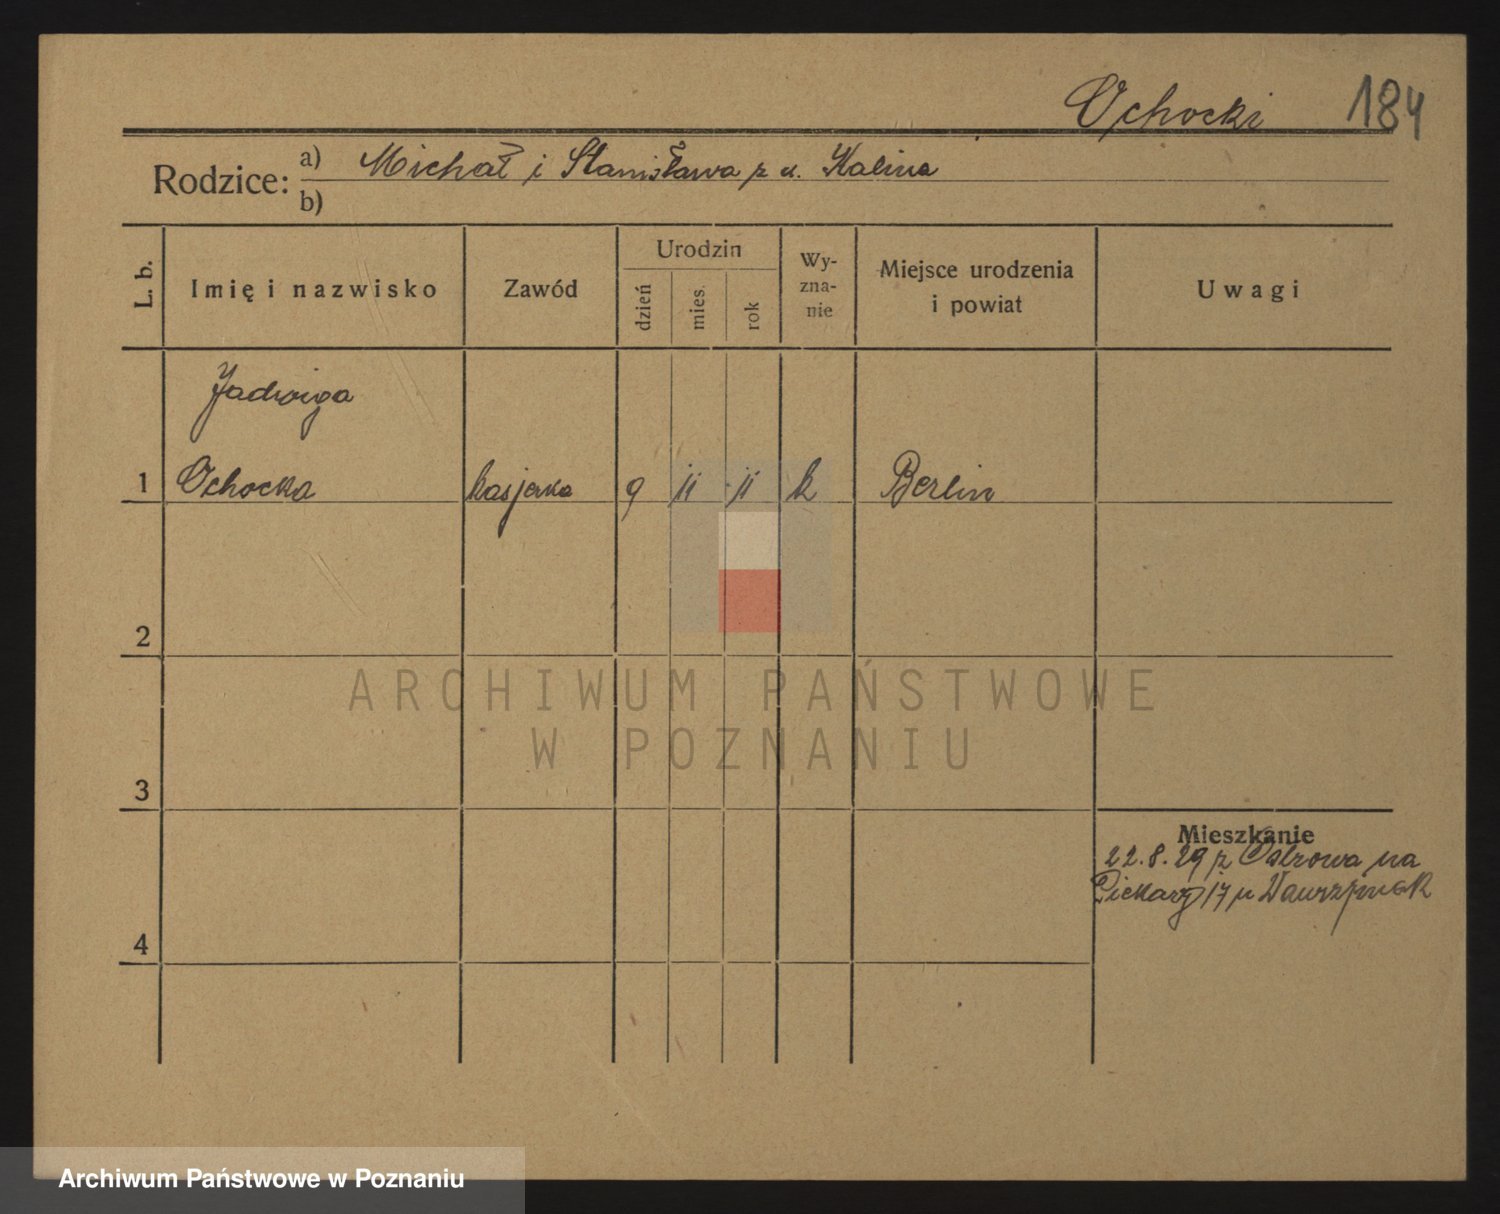 Ochocki 184
Rodzice: a) Michał i Stanisława z d. Kalina
b)
L. b.
Imię i nazwisko
Zawód
Urodzin
dzień
mies.
rok
Wy-
zna-
nie
Miejsce urodzenia
i powiat
Uwagi
Jadwiga
1 Ochocka kasjerka 9 11 11 k Berlin
2
ARCHIWUM PAŃSTWOWE
W POZNANIU
3
Mieszkanie
22.8.29 z Ostrowa na
Piekary 17 u Wawrzyniak
4
Archiwum Państwowe w Poznaniu